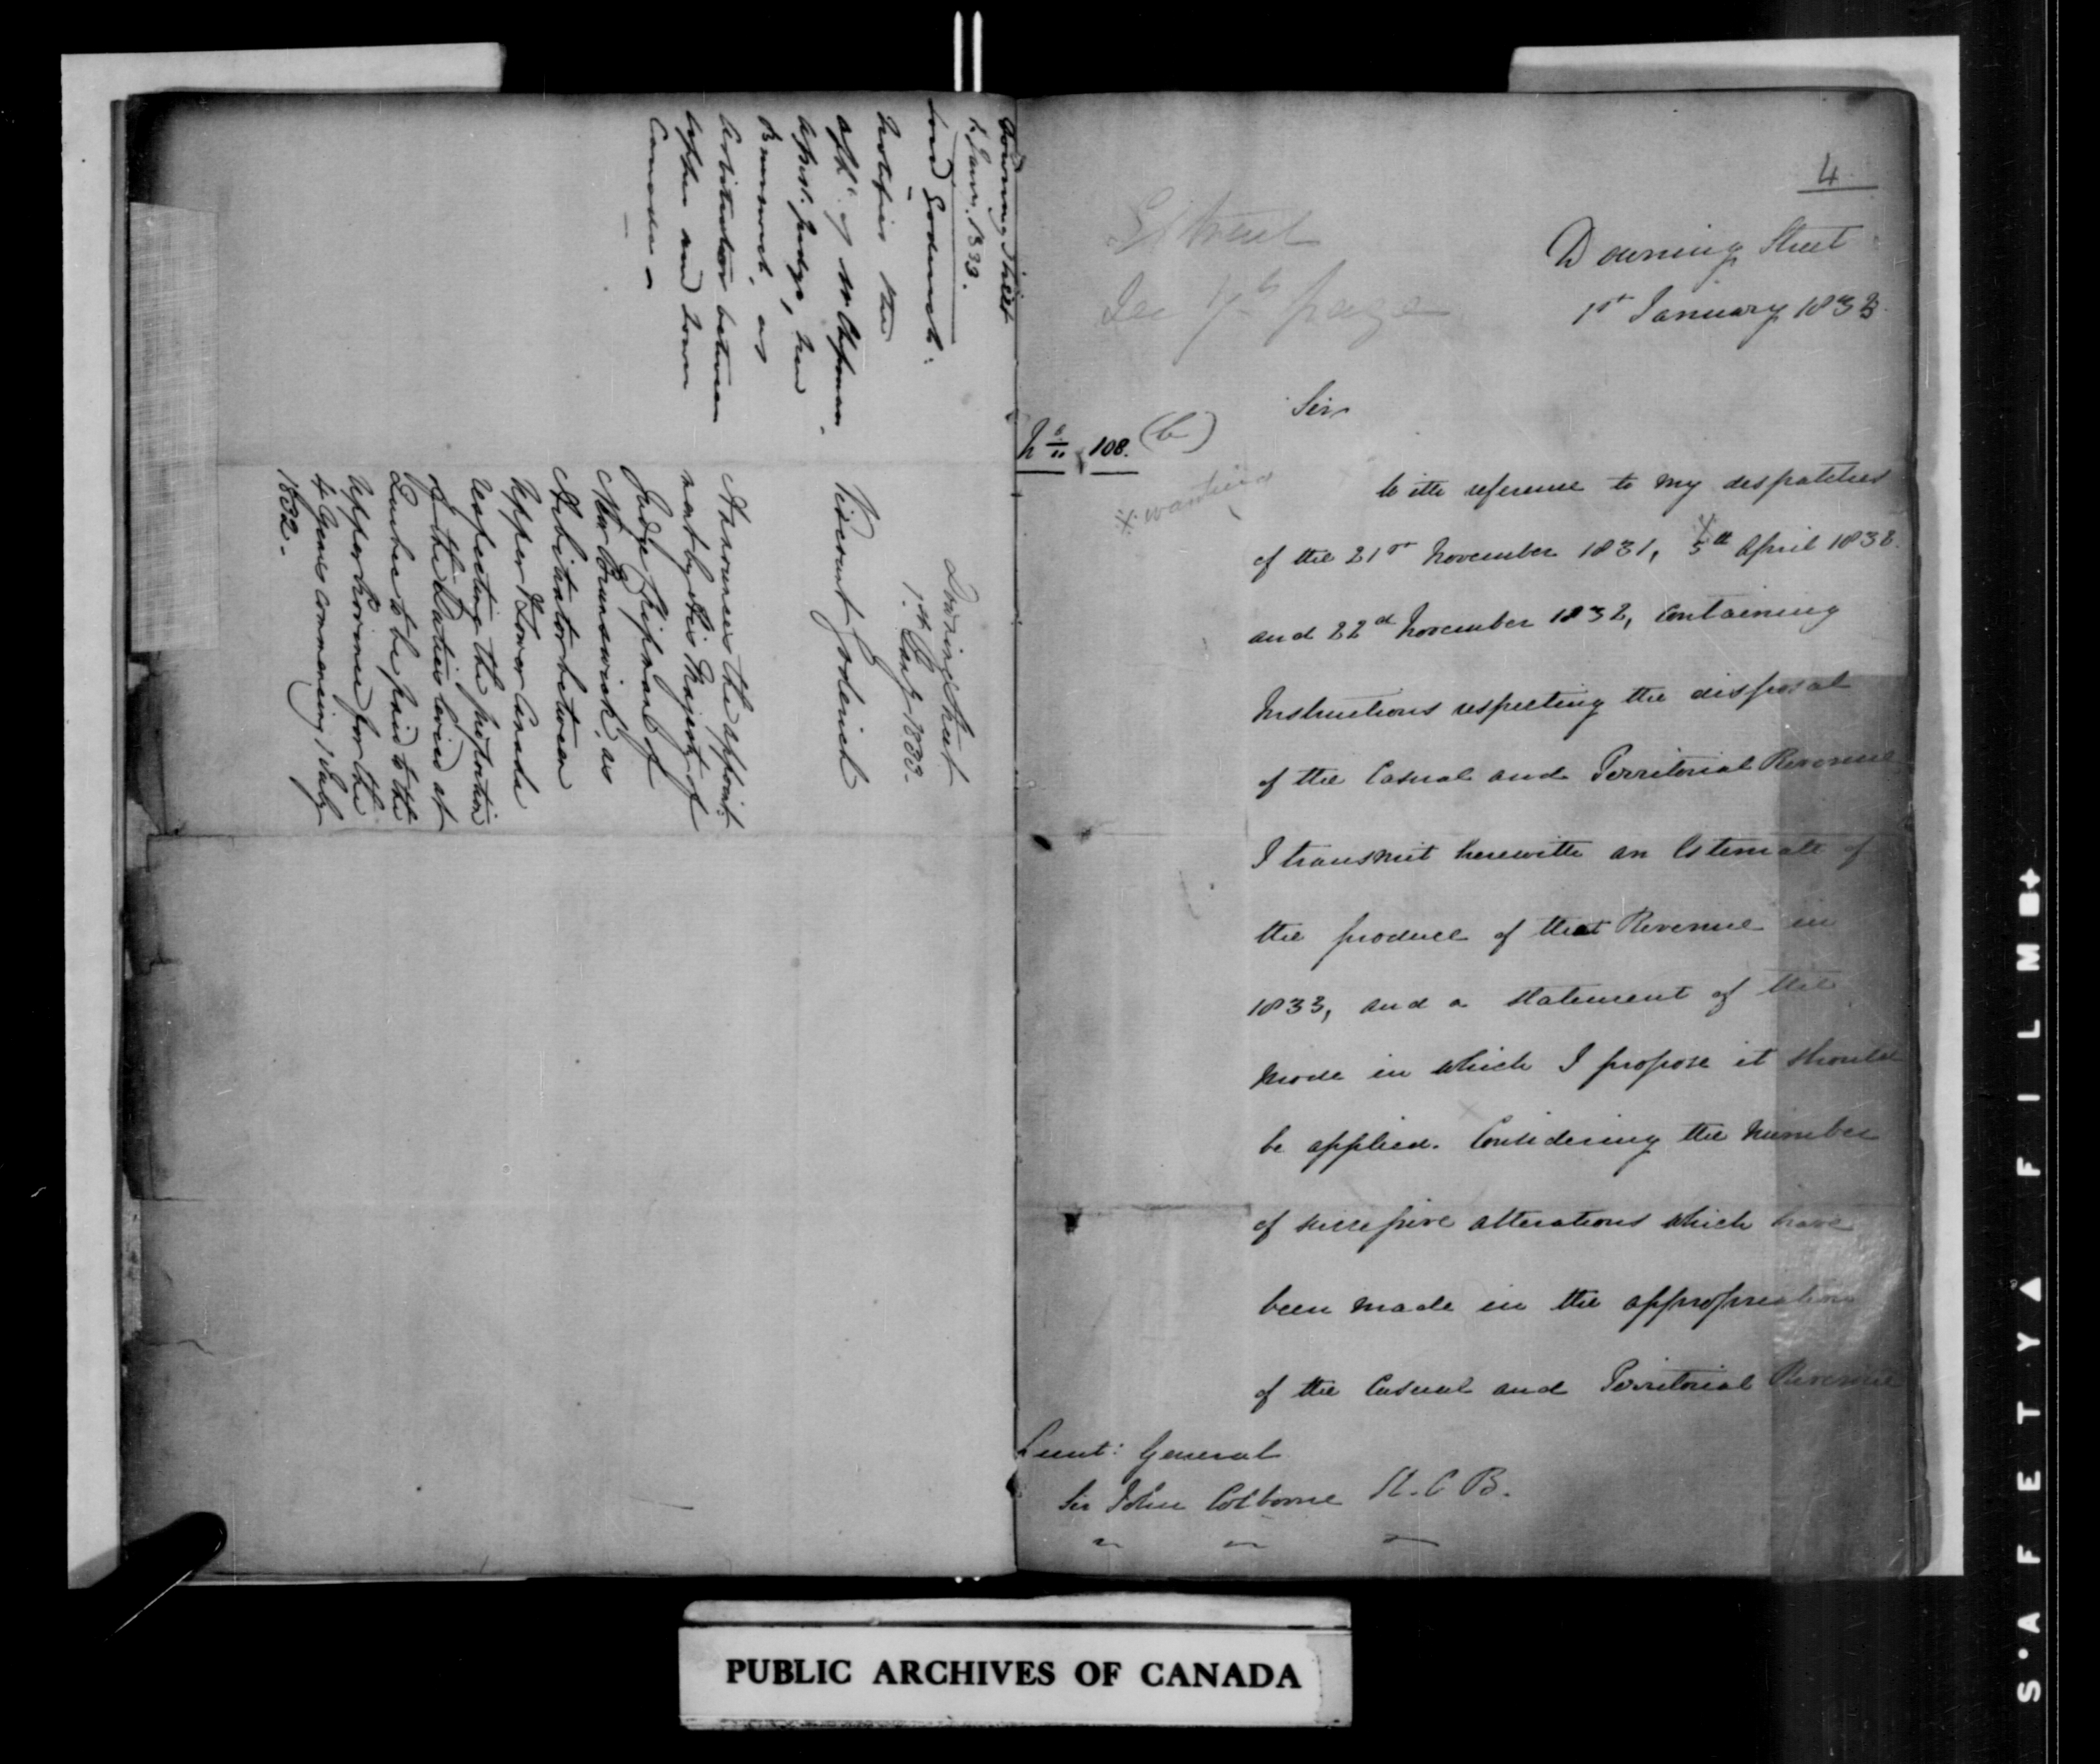 Downing Street
1 Jany. 1833.
Lord Goderich:
Notifies the
appt. of Mr Chipman
Judge, New
Brunswick, as
Arbitrator between
Upper and Lower
Canada -
Downing Street
1st Jany 1833.
Viscount Goderich
Announces the appoint-
ment by His Majesty of
Judge Chipman of
New Brunswick, as
Arbitrator between
Upper & Lower Canada
respecting the proportion
of the Duties levied at
Quebec to be paid to the
Upper Province for the
4 Years commencing 1 July
1832.-
4
Extract
See 7th page
Downing Street
1st January 1833.
Sir,
No 108. (b)
x wanting
With reference to my despatches
of the 21st November 1831, x 5th April 1832
and 22d November 1832, containing
Instructions respecting the disposal
of the Casual and Territorial Revenue
I transmit herewith an Estimate of
the produce of that Revenue in
1833, and a statement of the
mode in which I propose it should
be applied. Considering the number
of successive alterations which have
been made in the appropriation
of the Casual and Territorial Revenue
Lieut: General
Sir John Colborne K.C.B.
PUBLIC ARCHIVES OF CANADA
S'AFETY▲FILM■+